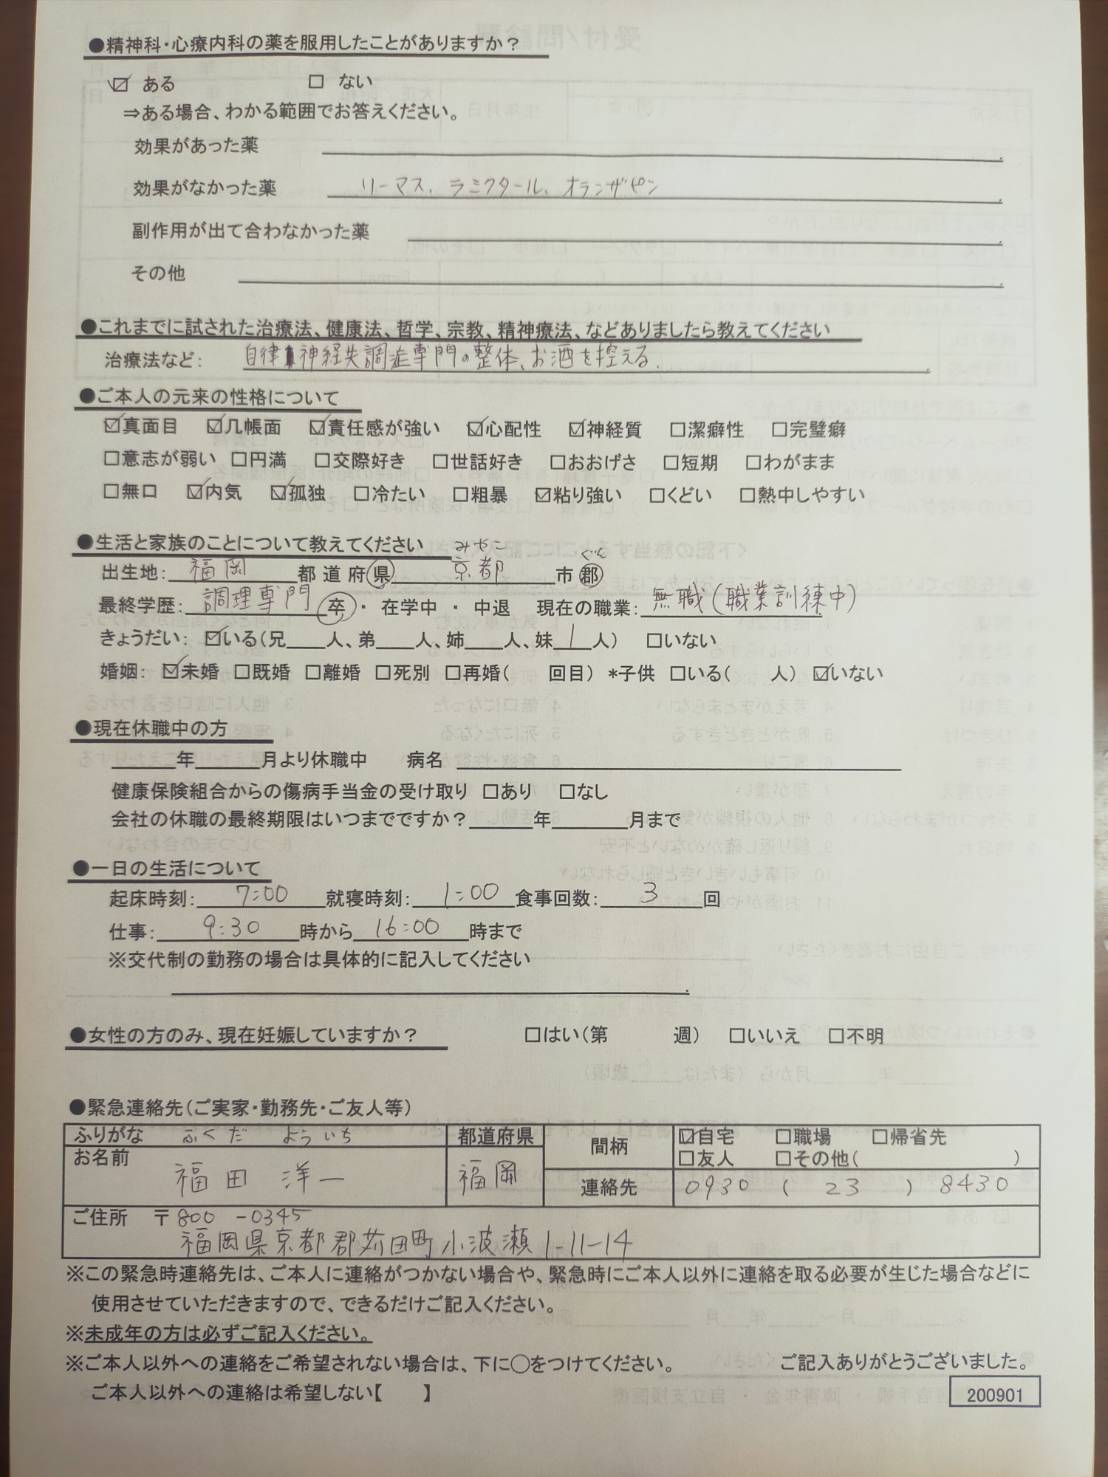 ●精神科・心療内科の薬を服用したことがありますか？
☑ ある　□ ない
⇒ある場合、わかる範囲でお答えください。
効果があった薬
効果がなかった薬　リーマス、ラミクタール、オランザピン
副作用が出て合わなかった薬
その他
●これまでに試された治療法、健康法、哲学、宗教、精神療法、などありましたら教えてください
治療法など：　自律神経失調症専門の整体、お酒を控える.
●ご本人の元来の性格について
☑真面目　☑几帳面　☑責任感が強い　☑心配性　☑神経質　□潔癖性　□完璧癖
□意志が弱い　□円満　□交際好き　□世話好き　□おおげさ　□短期　□わがまま
□無口　☑内気　☑孤独　□冷たい　□粗暴　☑粘り強い　□くどい　□熱中しやすい
●生活と家族のことについて教えてください　みやこ　ぐん
出生地：　福岡　都 道 府 県　京都　市 郡
最終学歴：　調理専門　卒 ・ 在学中 ・ 中退　現在の職業：　無職（職業訓練中）
きょうだい：　☑いる（兄　人、弟　人、姉　人、妹 1 人）　□いない
婚姻：　☑未婚　□既婚　□離婚　□死別　□再婚（　回目）　*子供　□いる（　人）　☑いない
●現在休職中の方
年　月より休職中　病名
健康保険組合からの傷病手当金の受け取り　□あり　□なし
会社の休職の最終期限はいつまでですか？　年　月まで
●一日の生活について
起床時刻：　7:00　就寝時刻：　1:00　食事回数：　3　回
仕事：　9:30　時から　16:00　時まで
※交代制の勤務の場合は具体的に記入してください
●女性の方のみ、現在妊娠していますか？　□はい（第　週）　□いいえ　□不明
●緊急連絡先（ご実家・勤務先・ご友人等）
ふりがな　ふくだ　よういち　都道府県　間柄　☑自宅　□職場　□帰省先
お名前　福田 洋一　福岡　□友人　□その他（　）
連絡先　0930 （ 23 ） 8430
ご住所　〒800 -0345
福岡県京都郡苅田町小波瀬1-11-14
※この緊急時連絡先は、ご本人に連絡がつかない場合や、緊急時にご本人以外に連絡を取る必要が生じた場合などに
使用させていただきますので、できるだけご記入ください。
※未成年の方は必ずご記入ください。
※ご本人以外への連絡をご希望されない場合は、下に○をつけてください。　ご記入ありがとうございました。
ご本人以外への連絡は希望しない【　】　200901